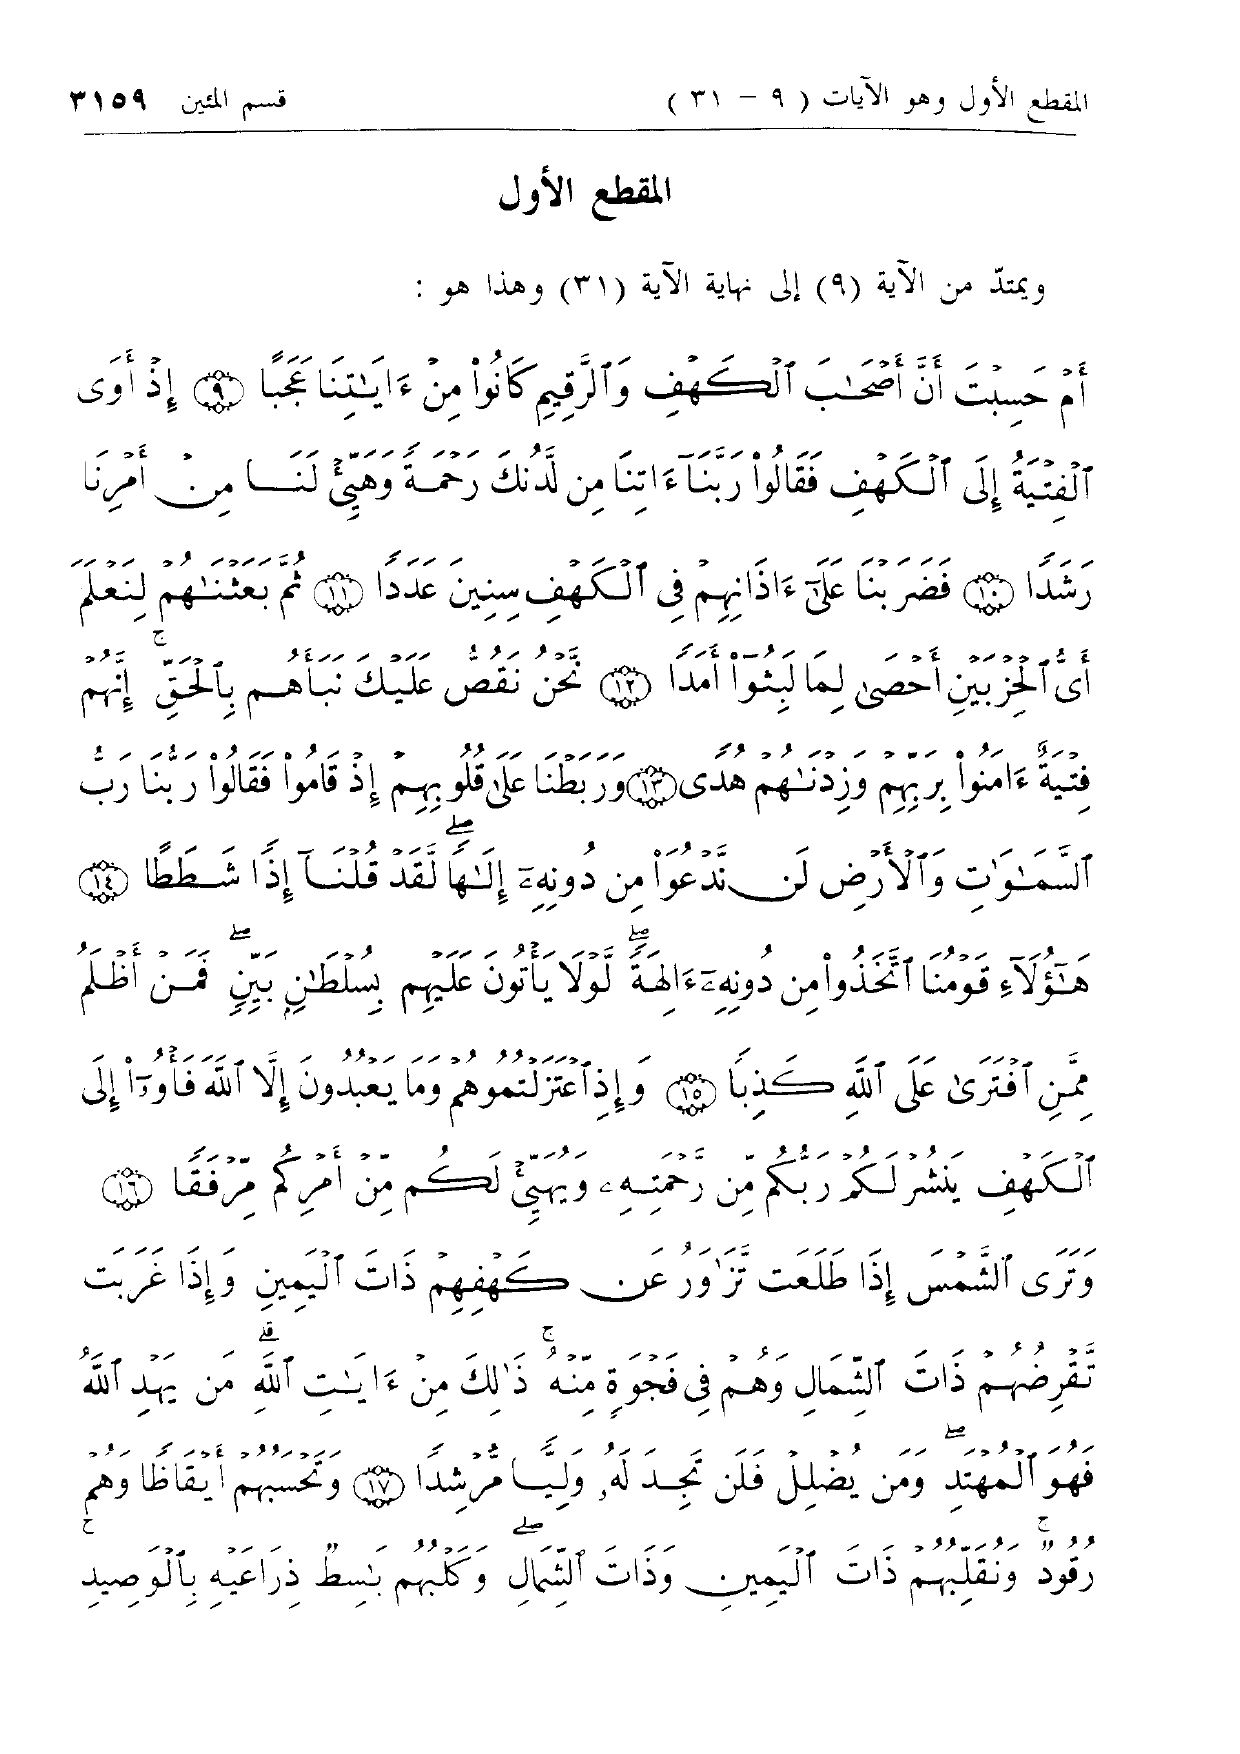 المقطع الأول وهو الآيات ( ٩ – ٣١ ) قسم المئين ٣١٥٩
المقطع الأول
ويمتدّ من الآية (٩) إلى نهاية الآية (٣١) وهذا هو :
أَمْ حَسِبْتَ أَنَّ أَصْحَٰبَ ٱلْكَهْفِ وَٱلرَّقِيمِ كَانُوا۟ مِنْ ءَايَٰتِنَا عَجَبًا ﴿٩﴾ إِذْ أَوَى
ٱلْفِتْيَةُ إِلَى ٱلْكَهْفِ فَقَالُوا۟ رَبَّنَآ ءَاتِنَا مِن لَّدُنكَ رَحْمَةً وَهَيِّئْ لَنَا مِنْ أَمْرِنَا
رَشَدًا ﴿١٠﴾ فَضَرَبْنَا عَلَىٰٓ ءَاذَانِهِمْ فِى ٱلْكَهْفِ سِنِينَ عَدَدًا ﴿١١﴾ ثُمَّ بَعَثْنَٰهُمْ لِنَعْلَمَ
أَىُّ ٱلْحِزْبَيْنِ أَحْصَىٰ لِمَا لَبِثُوٓا۟ أَمَدًا ﴿١٢﴾ نَّحْنُ نَقُصُّ عَلَيْكَ نَبَأَهُم بِٱلْحَقِّ ۚ إِنَّهُمْ
فِتْيَةٌ ءَامَنُوا۟ بِرَبِّهِمْ وَزِدْنَٰهُمْ هُدًى ﴿١٣﴾ وَرَبَطْنَا عَلَىٰ قُلُوبِهِمْ إِذْ قَامُوا۟ فَقَالُوا۟ رَبُّنَا رَبُّ
ٱلسَّمَٰوَٰتِ وَٱلْأَرْضِ لَن نَّدْعُوَا۟ مِن دُونِهِۦٓ إِلَٰهًا ۖ لَّقَدْ قُلْنَآ إِذًا شَطَطًا ﴿١٤﴾
هَٰٓؤُلَآءِ قَوْمُنَا ٱتَّخَذُوا۟ مِن دُونِهِۦٓ ءَالِهَةً ۖ لَّوْلَا يَأْتُونَ عَلَيْهِم بِسُلْطَٰنٍۭ بَيِّنٍ ۖ فَمَنْ أَظْلَمُ
مِمَّنِ ٱفْتَرَىٰ عَلَى ٱللَّهِ كَذِبًا ﴿١٥﴾ وَإِذِ ٱعْتَزَلْتُمُوهُمْ وَمَا يَعْبُدُونَ إِلَّا ٱللَّهَ فَأْوُۥٓا۟ إِلَى
ٱلْكَهْفِ يَنشُرْ لَكُمْ رَبُّكُم مِّن رَّحْمَتِهِۦ وَيُهَيِّئْ لَكُم مِّنْ أَمْرِكُم مِّرْفَقًا ﴿١٦﴾
وَتَرَى ٱلشَّمْسَ إِذَا طَلَعَت تَّزَٰوَرُ عَن كَهْفِهِمْ ذَاتَ ٱلْيَمِينِ وَإِذَا غَرَبَت
تَّقْرِضُهُمْ ذَاتَ ٱلشِّمَالِ وَهُمْ فِى فَجْوَةٍ مِّنْهُ ۚ ذَٰلِكَ مِنْ ءَايَٰتِ ٱللَّهِ ۗ مَن يَهْدِ ٱللَّهُ
فَهُوَ ٱلْمُهْتَدِ ۖ وَمَن يُضْلِلْ فَلَن تَجِدَ لَهُۥ وَلِيًّا مُّرْشِدًا ﴿١٧﴾ وَتَحْسَبُهُمْ أَيْقَاظًا وَهُمْ
رُقُودٌ ۚ وَنُقَلِّبُهُمْ ذَاتَ ٱلْيَمِينِ وَذَاتَ ٱلشِّمَالِ ۖ وَكَلْبُهُم بَٰسِطٌ ذِرَاعَيْهِ بِٱلْوَصِيدِ ۚ